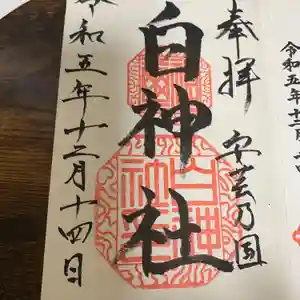 奉拝 安芸乃国
白神社
白神社
令和五年十二月十四日
令和五年十二月